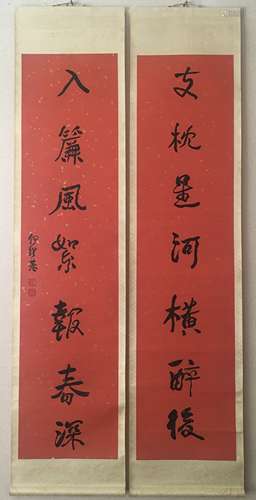 支枕星河橫醉後
入簾風絮報春深